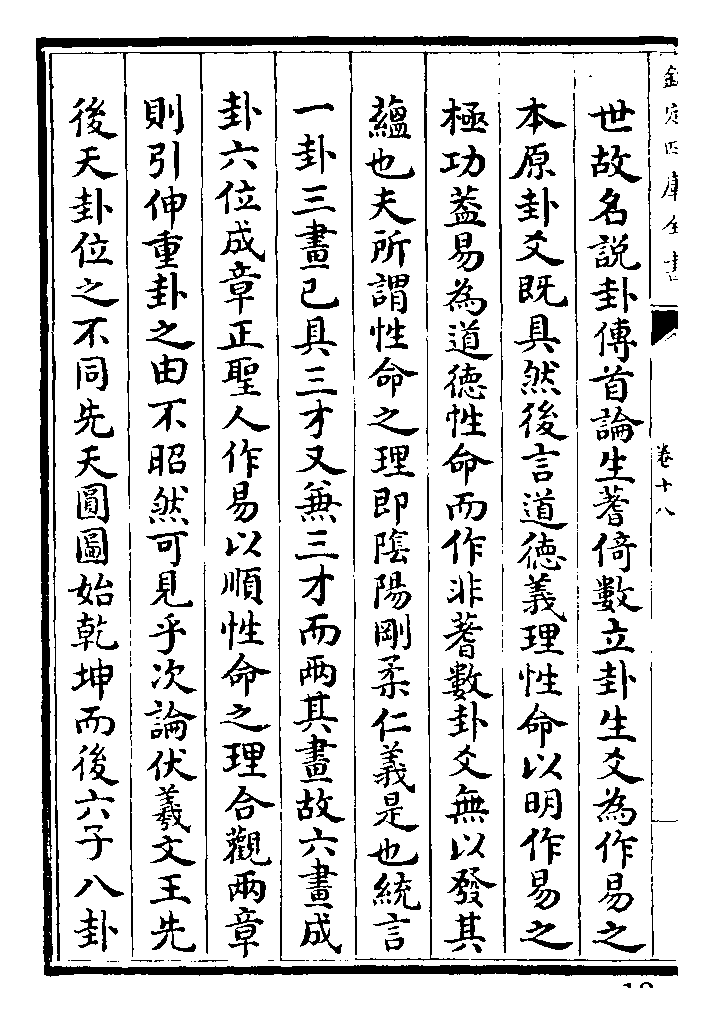 欽定四庫全書
卷十八
世故名說卦傳首論生蓍倚數立卦生爻為作易之
本原卦爻既具然後言道德義理性命以明作易之
極功葢易為道德性命而作非蓍數卦爻無以發其
蘊也夫所謂性命之理即隂陽剛柔仁義是也統言
一卦三畫已具三才又兼三才而兩其畫故六畫成
卦六位成章正聖人作易以順性命之理合觀兩章
則引伸重卦之由不昭然可見乎次論伏羲文王先
後天卦位之不同先天圓圖始乾坤而後六子八卦